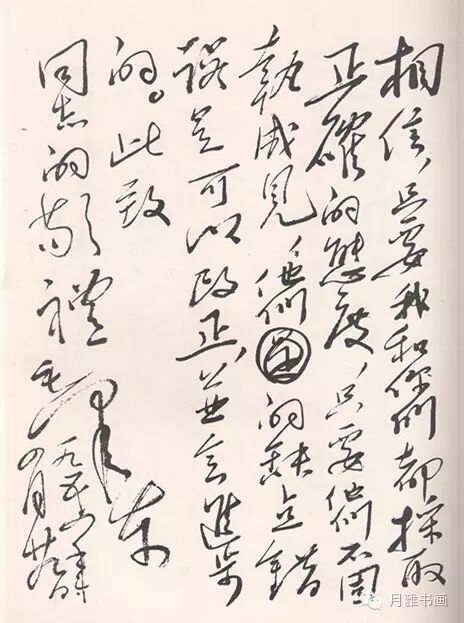 相信，只要我和你们都採取
正確的態度，只要他们不固
執成見，他们的缺点錯
誤是可以改正，並会進步
的。此致
同志的敬禮
毛澤东
一九五六年
四月
月雅书画